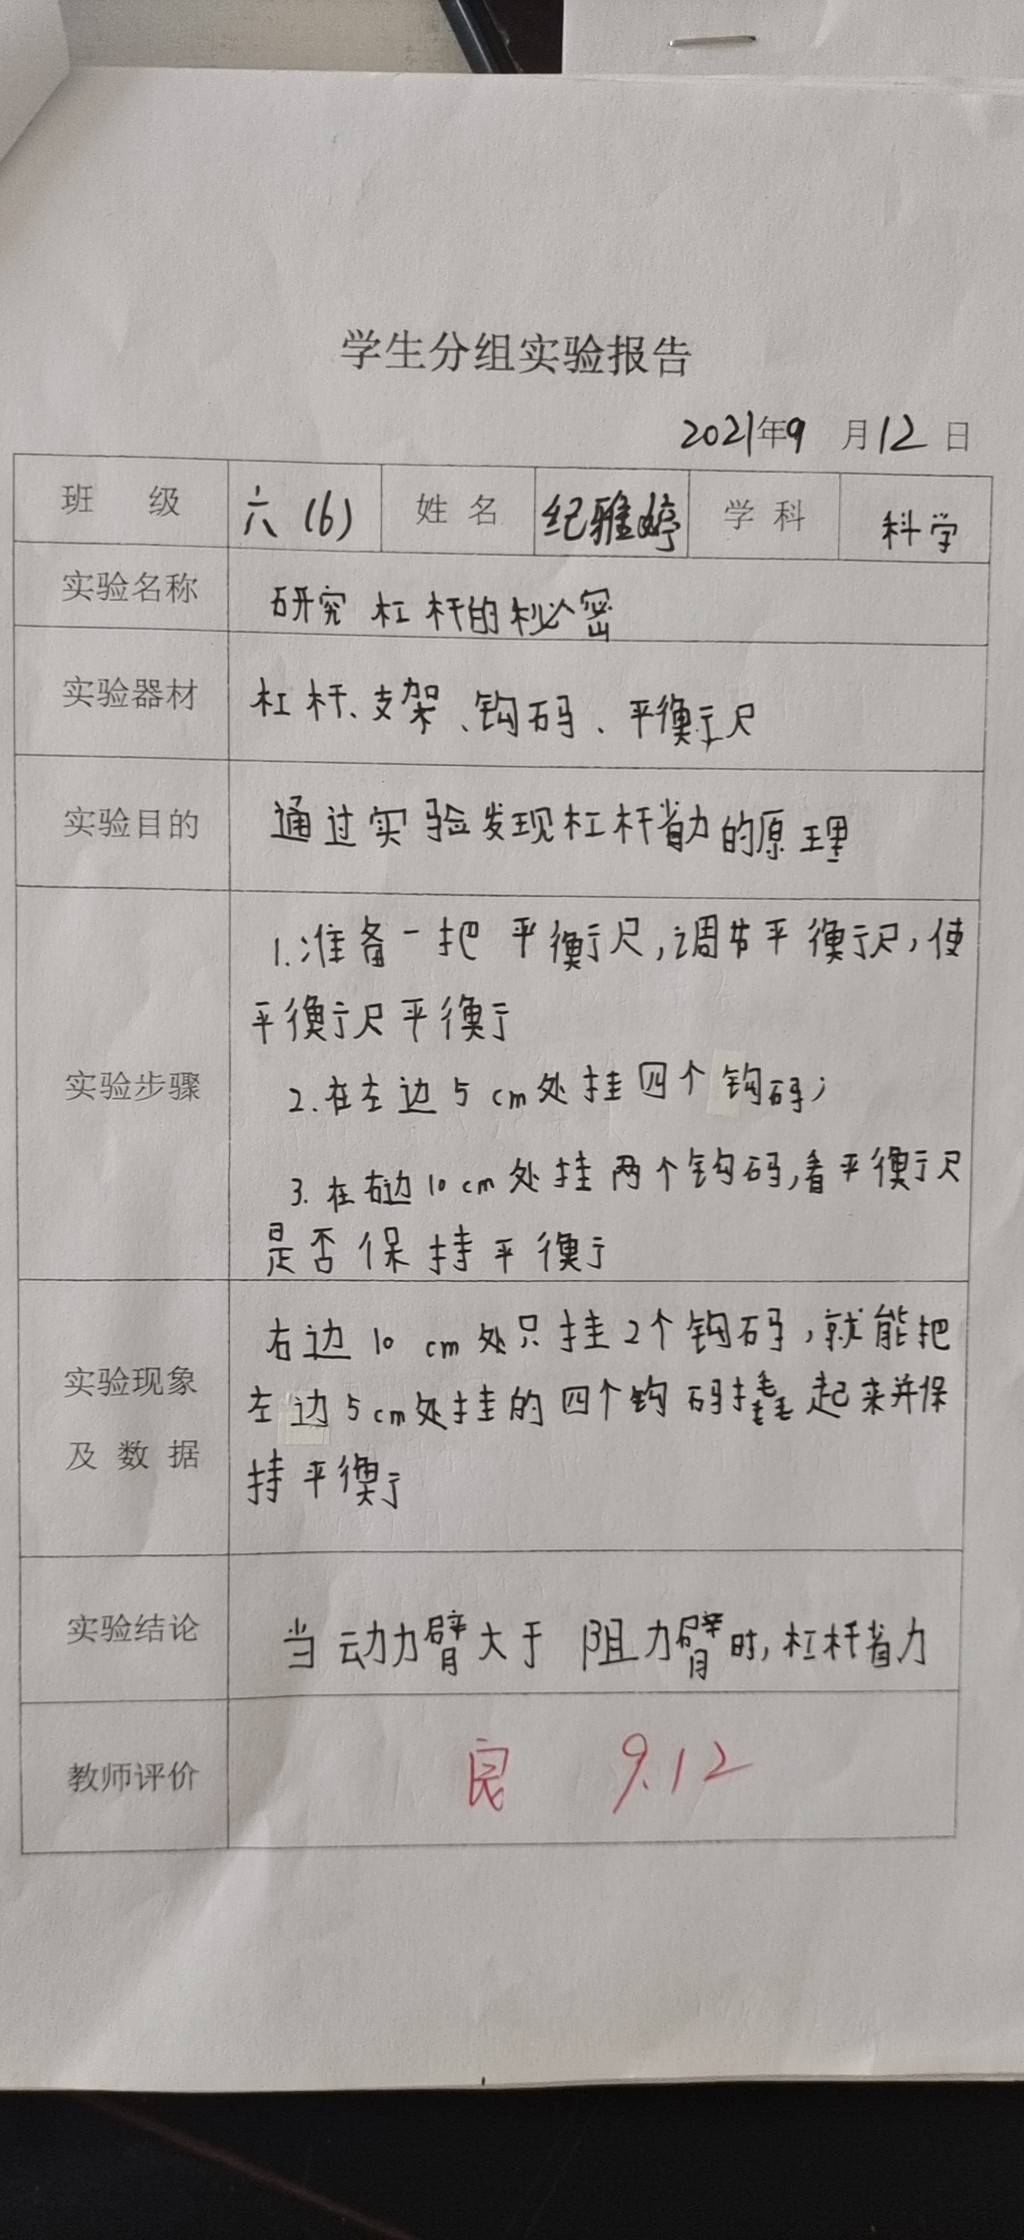 学生分组实验报告
2021年9月12日
班 级 六(6) 姓名 纪雅婷 学科 科学
实验名称 研究杠杆的秘密
实验器材 杠杆、支架、钩码、平衡尺
实验目的 通过实验发现杠杆省力的原理
实验步骤
1.准备一把平衡尺,调节平衡尺,使
平衡尺平衡
2.在左边5cm处挂四个钩码;
3.在右边10cm处挂两个钩码,看平衡尺
是否保持平衡
实验现象
及数据
右边10cm处只挂2个钩码,就能把
左边5cm处挂的四个钩码撬起来并保
持平衡
实验结论 当动力臂大于阻力臂时,杠杆省力
教师评价 良 9.12